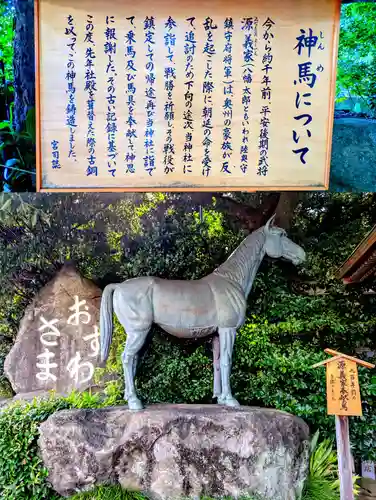 神馬について
しんめ
今から千年前 平安後期の武将
源義家(八幡太郎ともいわれ陸奥守
鎮守府将軍)は、奥州の豪族が反
乱を起こした際に朝廷の命を受け
て追討のため下向の途次、当神社に
参詣して、戦勝を祈願しその戦役が
鎮定しての帰途再び当神社に詣
て、乗馬及び馬具を奉献して神恩
に報謝した。その古記録に基づいて
この度、先年社殿を葺替した際の古銅
を以ってこの神馬を鋳造しました。
宮司誌
おすわ
さま
九百年前
源義家奉献